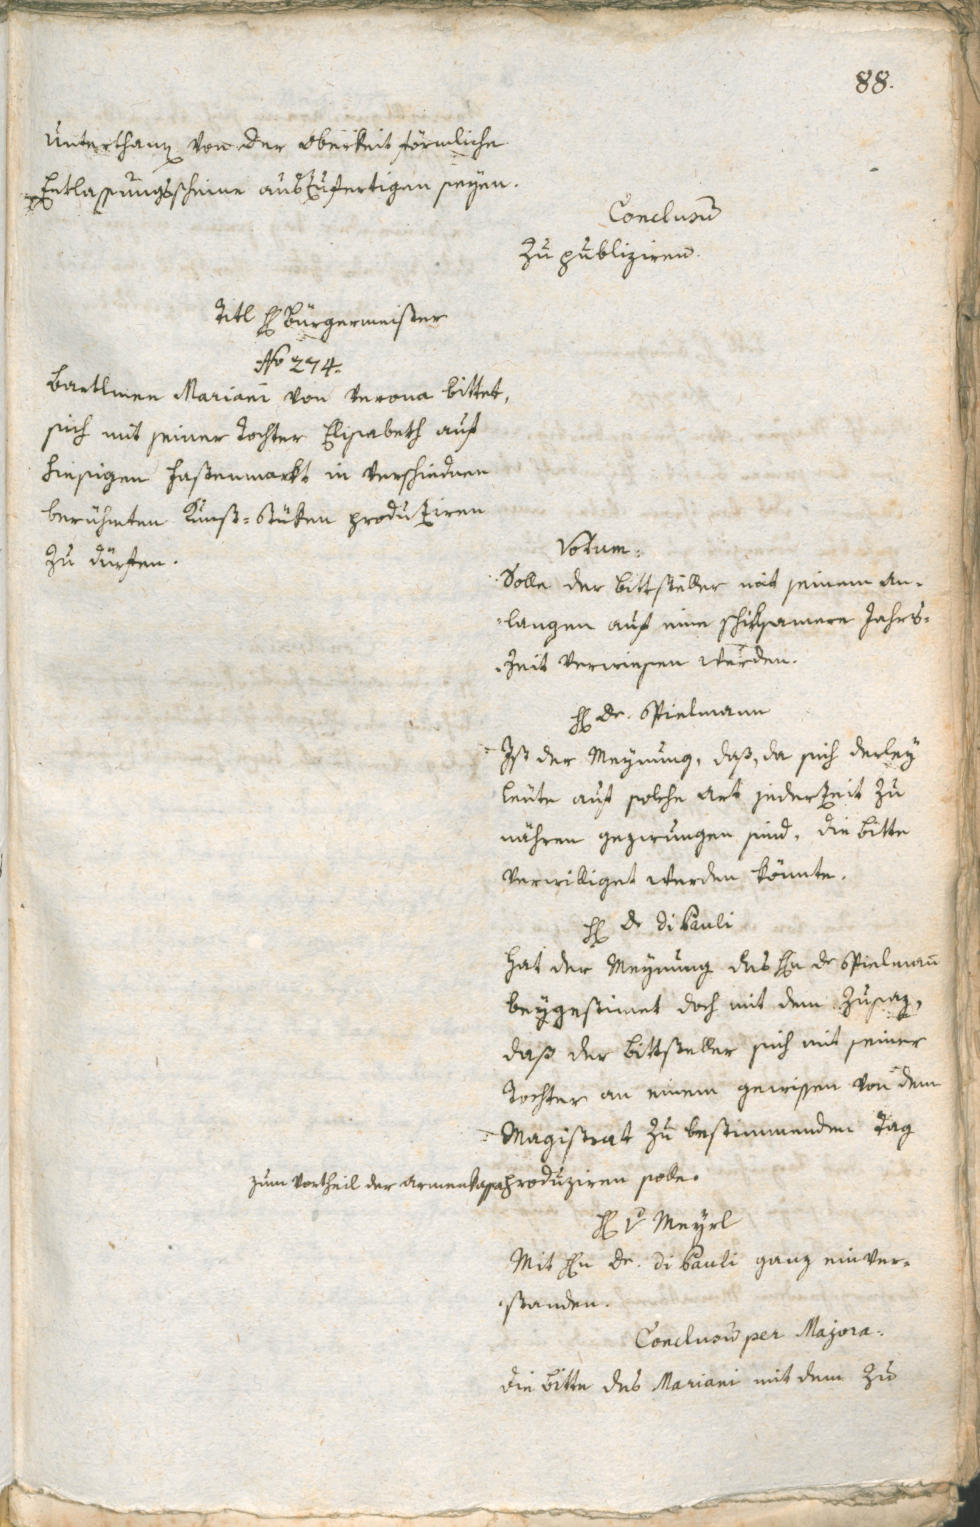 88.
Unterthanen von der Oberkeit förmliche
Entlassungsscheine auszufertigen seyen.
Conclusum
Zu publiziren.
Titl H Bürgermeister
No 274.
Bartlmee Mariani von Verona bittet,
sich mit seiner Tochter Elisabeth auf
hiesigen Fastenmarkt in verschiednen
berühmten Kunst-Stüken produziren
zu dürfen.
Votum:
Solle der Bittsteller mit seinem An-
langen auf eine schiksamere Jahrs-
zeit verwiesen werden.
H Dr. Spielmann
Ist der Meynung, daß, da sich derley
Leute auf solche Art jederzeit zu
nähren gezwungen sind, die Bitte
verwilliget werden könnte.
H Dr Di Pauli
Hat der Meynung des Hn Dr Spielmann
beygestimet doch mit dem Zusaz,
daß der Bittsteller sich mit seiner
Tochter an einem gewissen von dem
Magistrat zu bestimmenden Tag
zum Vortheil der Armenkassa produziren solle.
H v Meyrl
Mit Hn Dr. Di Pauli ganz einver-
standen.
Conclusum per Majora.
Die Bitte des Mariani mit dem Zu